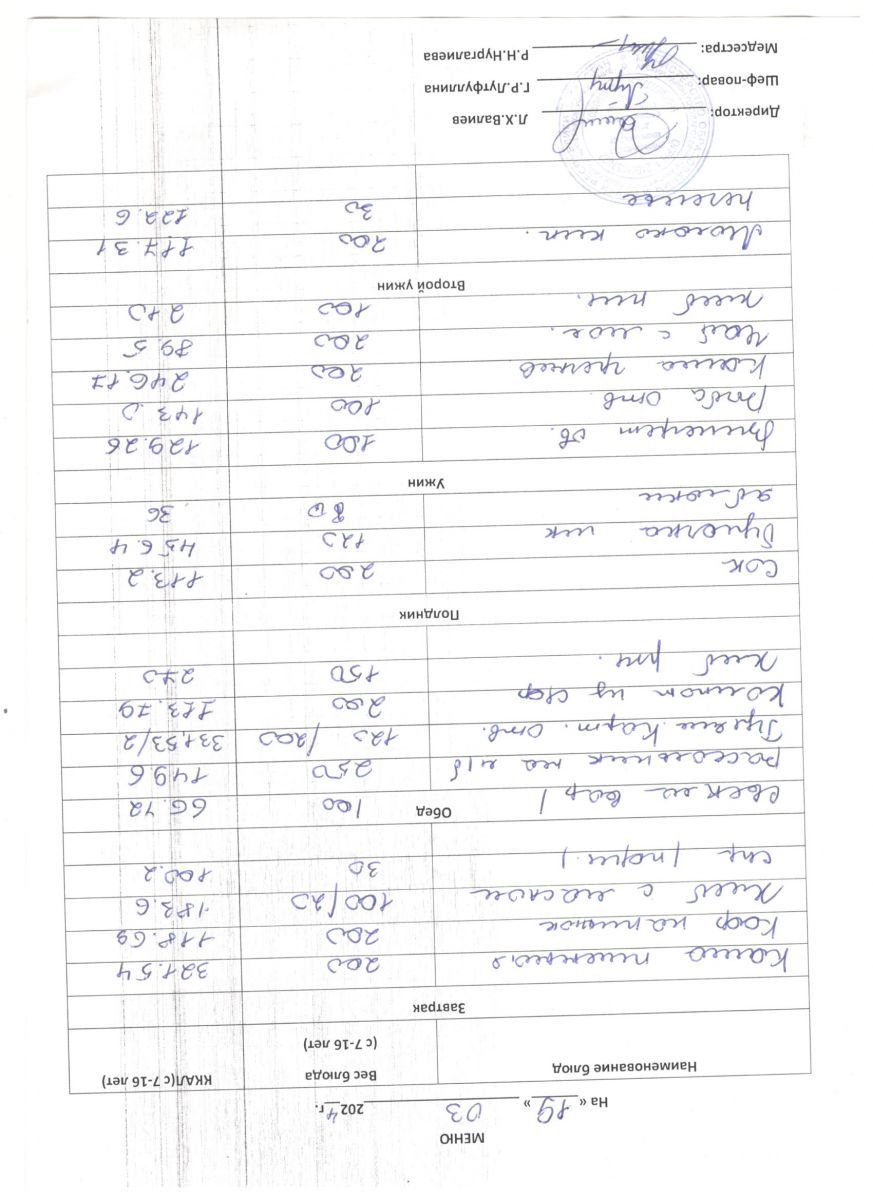 МЕНЮ
На « 19 » 03 2024 г.
Наименование блюд Вес блюда (с 7-16 лет) ККАЛ(с 7-16 лет)
Завтрак
Каша пшенная 200 321.54
Коф напиток 200 118.69
Хлеб с маслом 100/20 183.6
сыр (порц.) 30 100.2
Обед
свекла вар / 100 66.12
рассольник на м/б 250 149.6
Гуляш Карт. Отв. 120 /200 331,53/2
компот из сф 200 113.79
Хлеб рж. 150 270
Полдник
Сок 200 113.2
Булочка 120 456.4
яблоки 80 36
Ужин
Винегрет ов. 100 129.26
Рыба Отв. 100 143.0
Каша гречнев 200 246.17
Чай с мол. 200 89.5
Хлеб пш. 100 210
Второй ужин
Молоко кип. 200 117.31
печенье 30 122.6
Директор: Л.Х.Валиев
Шеф-повар: Г.Р.Лутфуллина
Медсестра: Р.Н.Нургалиева